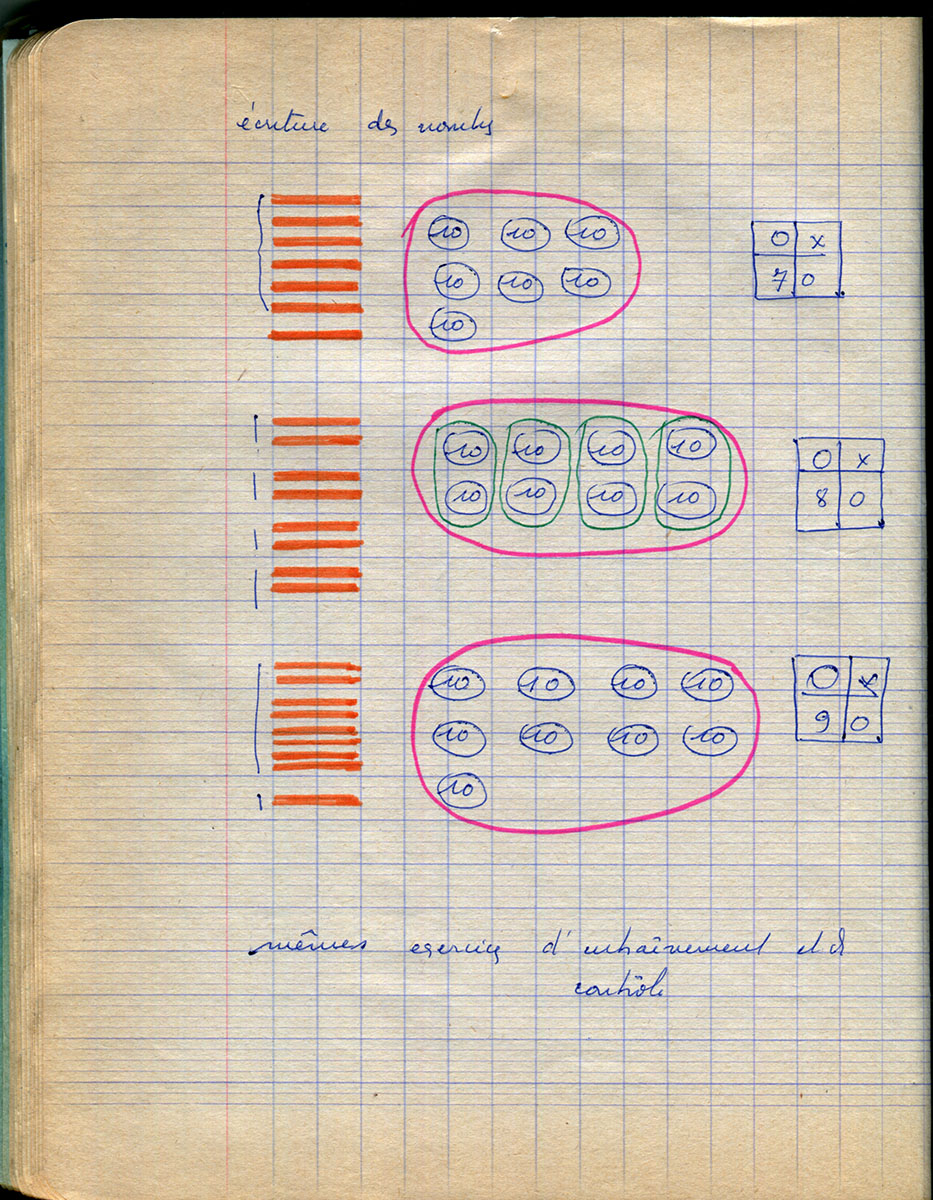 écriture des nombres
10 10 10
10 10 10
10
0 x
7 0
10 10 10 10
10 10 10 10
0 x
8 0
10 10 10 10
10 10 10 10
10
0 x
9 0
mêmes exercices d'entraînement et de
contrôle